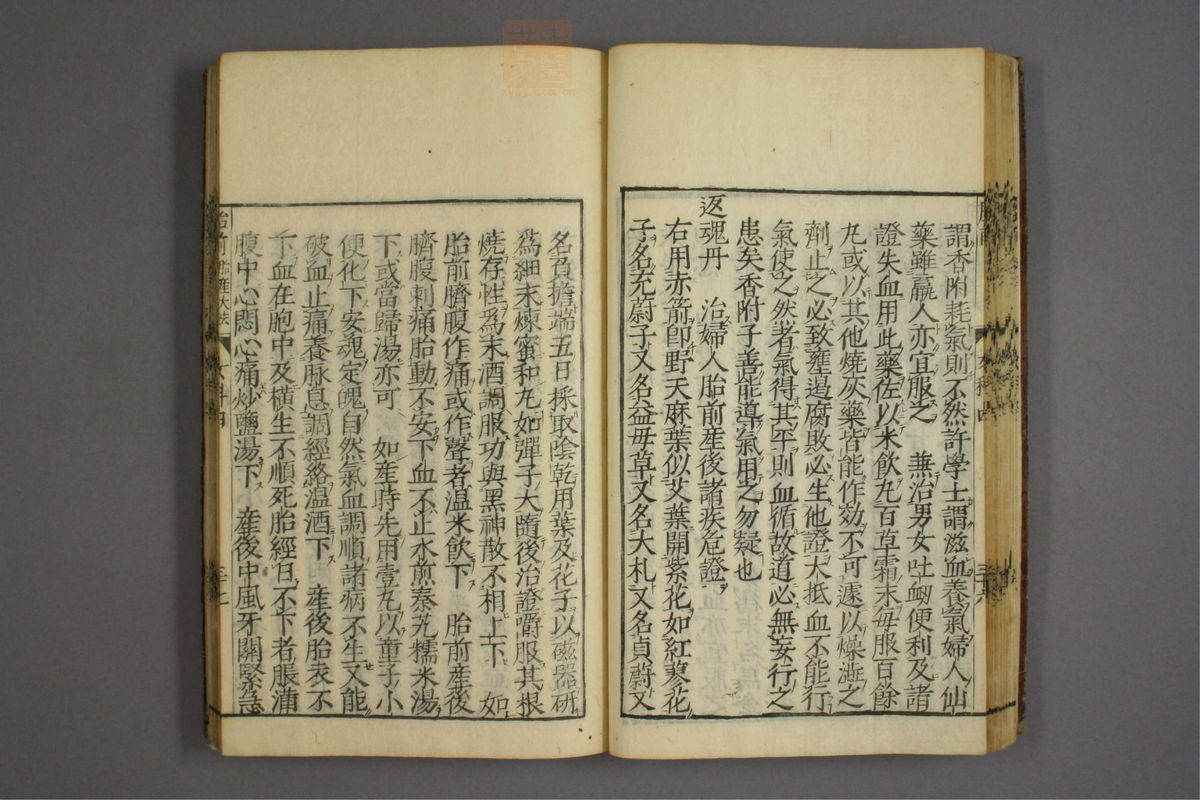 謂香附耗氣則不然許學士謂滋血養氣婦人仙
藥雖羸人亦宜服之　兼治男女吐衂便利及諸
證失血用此藥佐以米飲九百草霜末每服百餘
丸或以其他燒灰藥皆能作効不可遽以燥澁之
劑止之必致壅遏腐敗必生他證大抵血不能行
氣使之然者氣得其平則血循故道必無妄行之
患矣香附子善能導氣用之勿疑也
返魂丹　治婦人胎前產後諸疾危證
右用赤箭卽野天麻葉似艾葉開紫花如紅蓼花
子名充蔚子又名益毋草又名大札又名貞蔚又
名負擔端五日採取陰乾用葉及花子以磁器研
為細末煉蜜和丸如彈子大隨後治證嚼服其根
燒存性為末酒調服功與黑神散不相上下　如
胎前臍腹作痛或作聲者温米飲下　胎前產後
臍腹刺痛胎動不安下血不止水煎秦艽糯米湯
下或當歸湯亦可　如產時先用壹丸以童子小
便化下安魂定魄自然氣血調順諸病不生又能
破血止痛養脉息調經絡温酒下　產後胎衣不
下血在胞中及橫生不順死胎經日不下者脹滿
腹中心悶心痛炒鹽湯下　產後中風牙關緊急